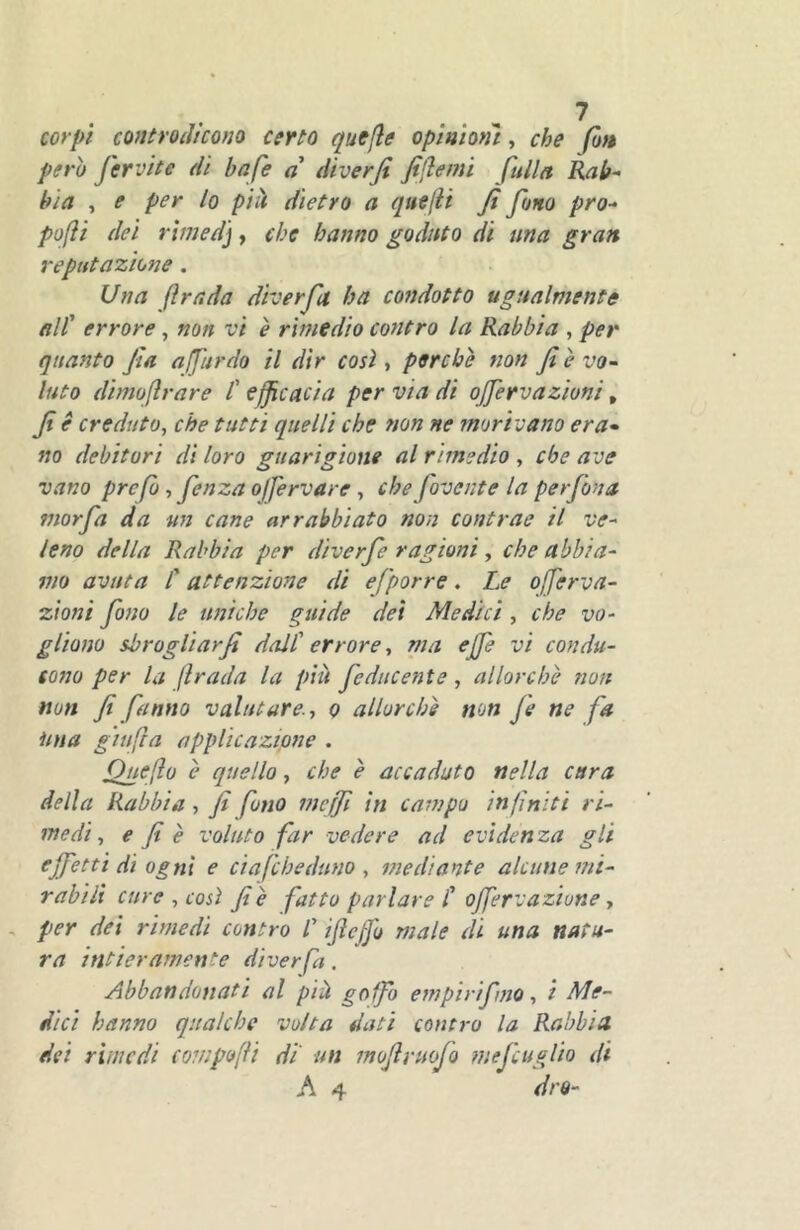 7
corpi controdicono certo queſte opinioni, che ſon
però ſervite di baſe a' diverſi ſiſtemi ſulla Rab-
bia , e per lo più dietro a queſti ſi ſono pro-
poſti dei rimedj, che hanno goduto di una gran
reputazione .
Una ſtrada diverſa ha condotto ugualmente
all' errore, non vi è rimedio contro la Rabbia , per
quanto ſia aſſurdo il dir così, perchè non ſi è vo-
luto dimoſtrare l' efficacia per via di oſſervazioni,
ſi è creduto, che tutti quelli che non ne morivano era-
no debitori di loro guarigione al rimedio , che ave
vano preſo , ſenza oſſervare , che ſovente la perſona
morſa da un cane arrabbiato non contrae il ve-
leno della Rabbia per diverſe ragioni, che abbia-
mo avuta l' attenzione di eſporre. Le oſſerva-
zioni ſono le uniche guide dei Medici, che vo-
gliono sbrogliarſi dall' errore, ma eſſe vi condu-
cono per la ſtrada la più ſeducente, allorchè non
non ſi ſanno valutare., o allorchè non ſe ne fa
una giuſta applicazione .
Queſto è quello, che è accaduto nella cura
della Rabbia, ſi ſono meſſi in campo infiniti ri-
medi, e ſi è voluto far vedere ad evidenza gli
effetti di ogni e ciaſcheduno , mediante alcune mi-
rabili cure , così ſi è fatto parlare l' oſſervazione,
per dei rimedi contro l' iſteſſo male di una natu-
ra intieramente diverſa.
Abbandonati al più goffo empiriſmo, i Me-
dici hanno qualche volta dati contro la Rabbia
dei rimedi compoſti di un moſtruoſo meſcuglio di
A 4 dro-